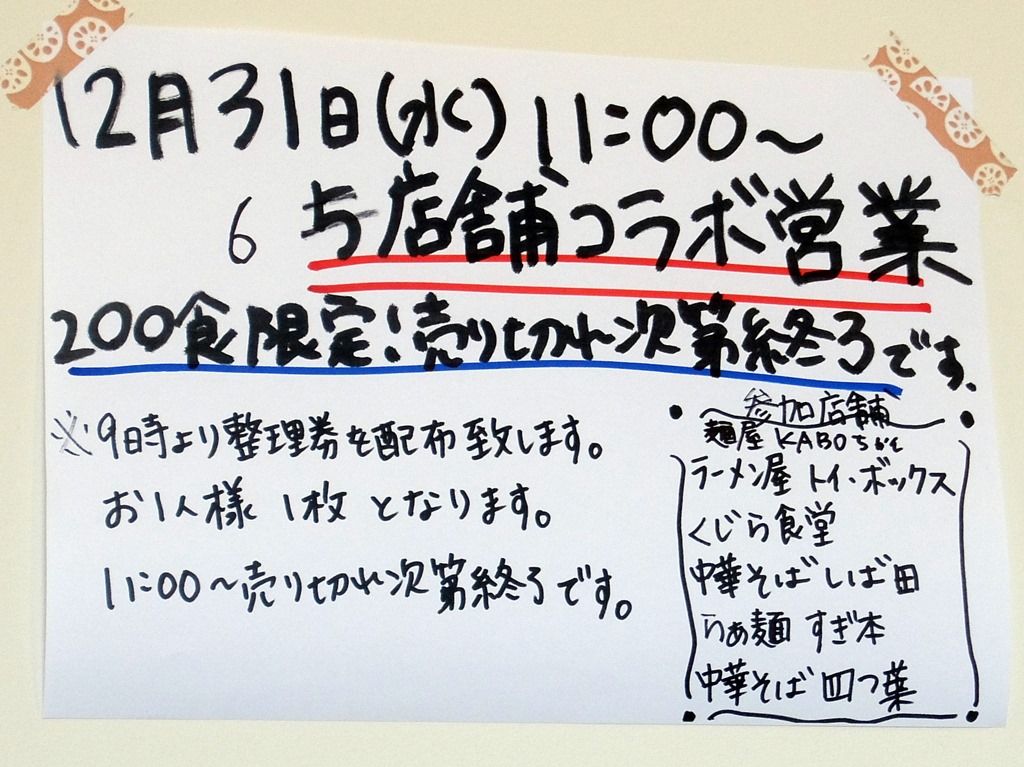 12月31日(水)11:00〜
6 5店舗コラボ営業
200食限定!売り切れ次第終了です.
※9時より整理券を配布致します。
お1人様 1枚 となります。
11:00〜売り切れ次第終了です。
参加店舗
麺屋 KABOちゃん
ラーメン屋 トイ・ボックス
くじら食堂
中華そば しば田
らぁ麺 すぎ本
中華そば 四つ葉